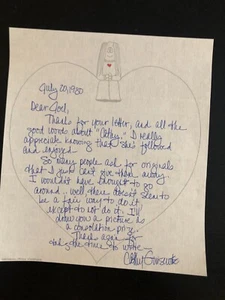 July 20, 1980
Dear Joel,
Thanks for your letter, and all the
good words about "Cathy." I really
appreciate knowing that she's followed
and enjoyed.
So many people ask for originals
that I just can't give them away.
I wouldn't have enough to go
around.. well there doesn't seem to
be a fair way to do it,
except to not do it. I'll
draw you a picture as
a consolation prize.
Thanks again for
taking the time to write—
Cathy Guisewite